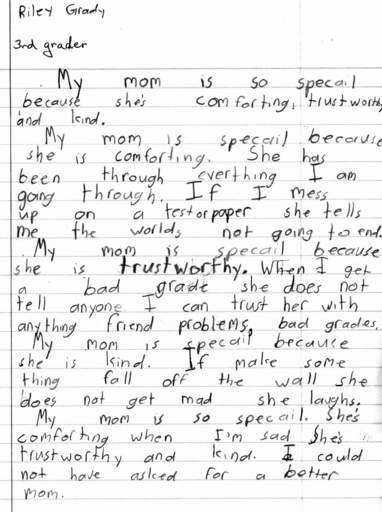 Riley Grady
3rd grader
My mom is so specail
because she's comforting, trustworthy
and kind.
My mom is specail because
she is comforting. She has
been through everthing I am
going through. If I mess
up on a test or paper she tells
me the worlds not going to end.
My mom is specail because
she is trustworthy. When I get
a bad grade she does not
tell anyone I can trust her with
anything friend problems, bad grades.
My mom is specail because
she is kind. If make some
thing fall off the wall she
does not get mad she laughs.
My mom is so specail. She's
comforting when I'm sad She's
trustworthy and kind. I could
not have asked for a better
mom.